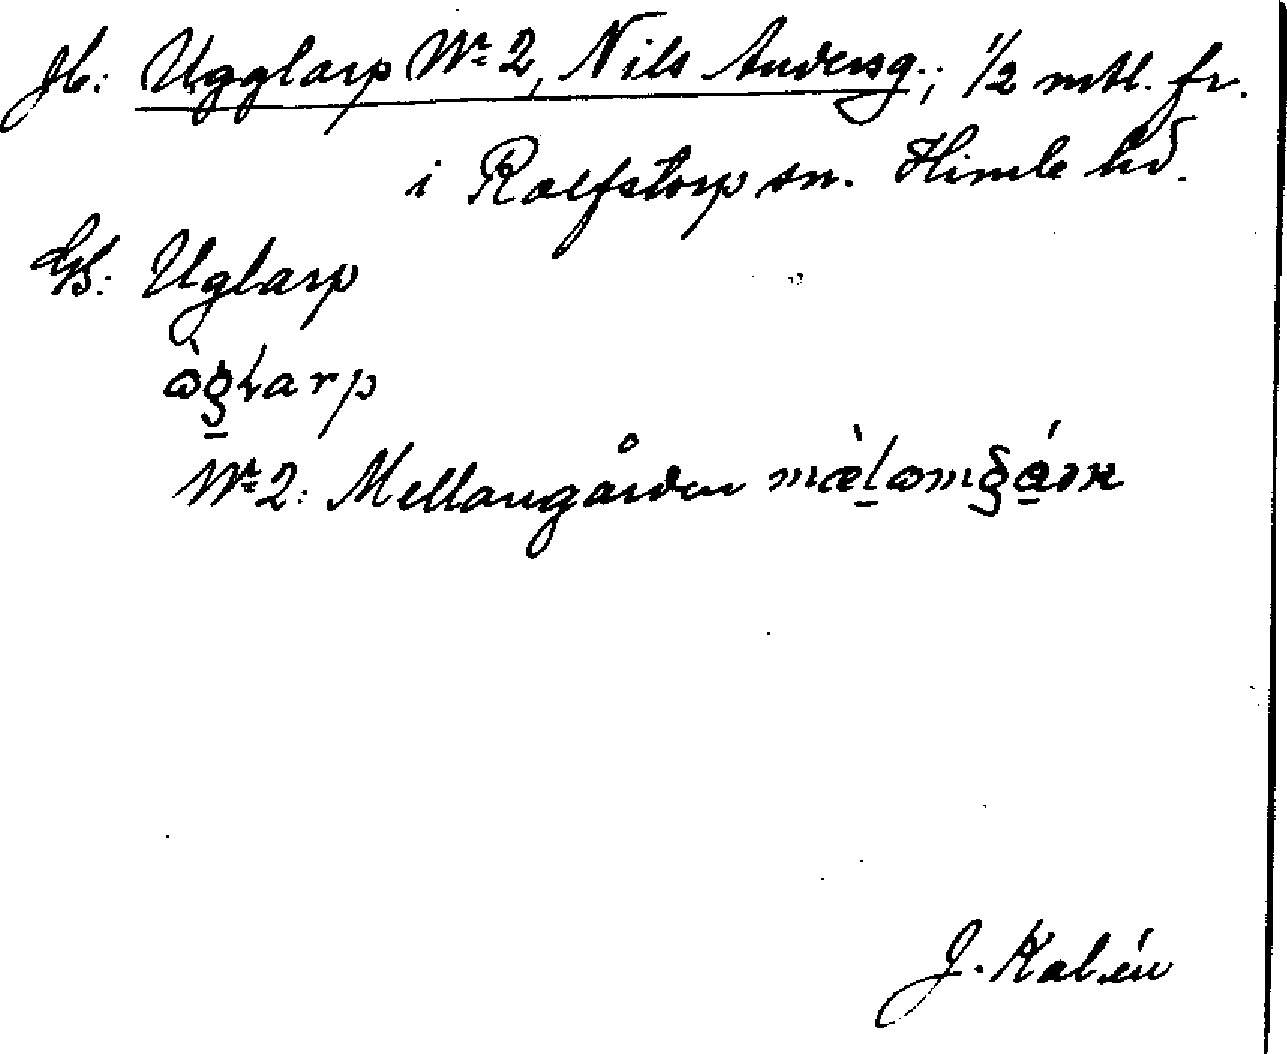 Jb: Ugglarp Nr 2, Nils Andersg.; 1/2 mtl. fr.
i Rolfstorp sn. Himle hd.
GB: Uglarp
Nr 2: Mellangården
J. Kalén